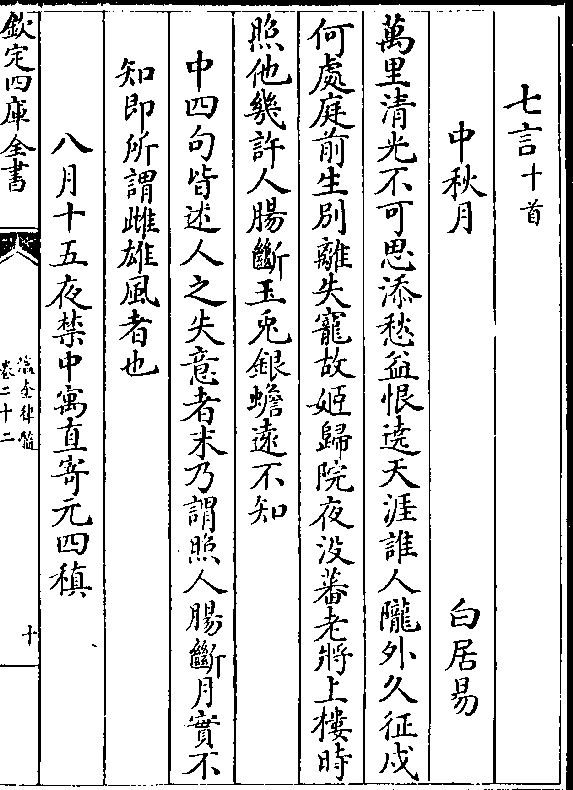 七言十首
中秋月 白居易
萬里清光不可思添愁益恨遶天涯誰人隴外久征戍
何處庭前生別離失寵故姬歸院夜没蕃老將上樓時
照他幾許人腸斷玉兎銀蟾逺不知
中四句皆述人之失意者末乃謂照人腸斷月實不
知即所謂雌雄風者也
八月十五夜禁中寓直寄元四稹
欽定四庫全書
瀛奎律髓
卷二十二
十